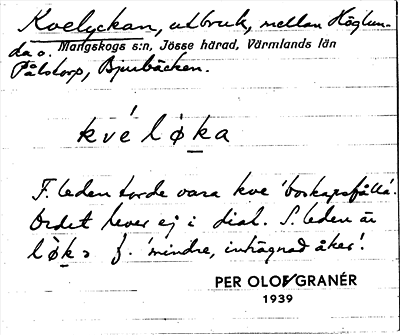 Kvelyckan, utbruk, mellan Höglun-
da o. Mangskogs s:n, Jösse härad, Värmlands län
Pålstorp, Bjurbäcken.
kvéløka
F. leden torde vara kve 'boskapsfålla'.
Ordet lever ej i dial. S. leden är
løk> f. 'mindre, inhägnad åker'.
PER OLOF GRANÉR
1939